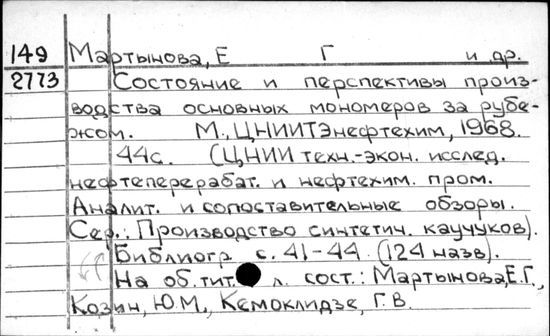 149 Мартынова, Е Г и др.
2773 Состояние и перспективы произ-
водства основных мономеров за рубе-
жом. М., ЦНИИТЭнефтехим, 1968.
44с. (ЦНИИ техн.-экон. исслед.
нефтеперерабат. и нефтехим. пром.
Аналит. и сопоставительные обзоры.
Сер.: Производство синтетич. каучуков).
Библиогр. с. 41-44 (124 назв).
На об. тит. л. сост.: Мартынова, Е.Г.,
Козин, Ю.М., Кемоклидзе, Г.В.